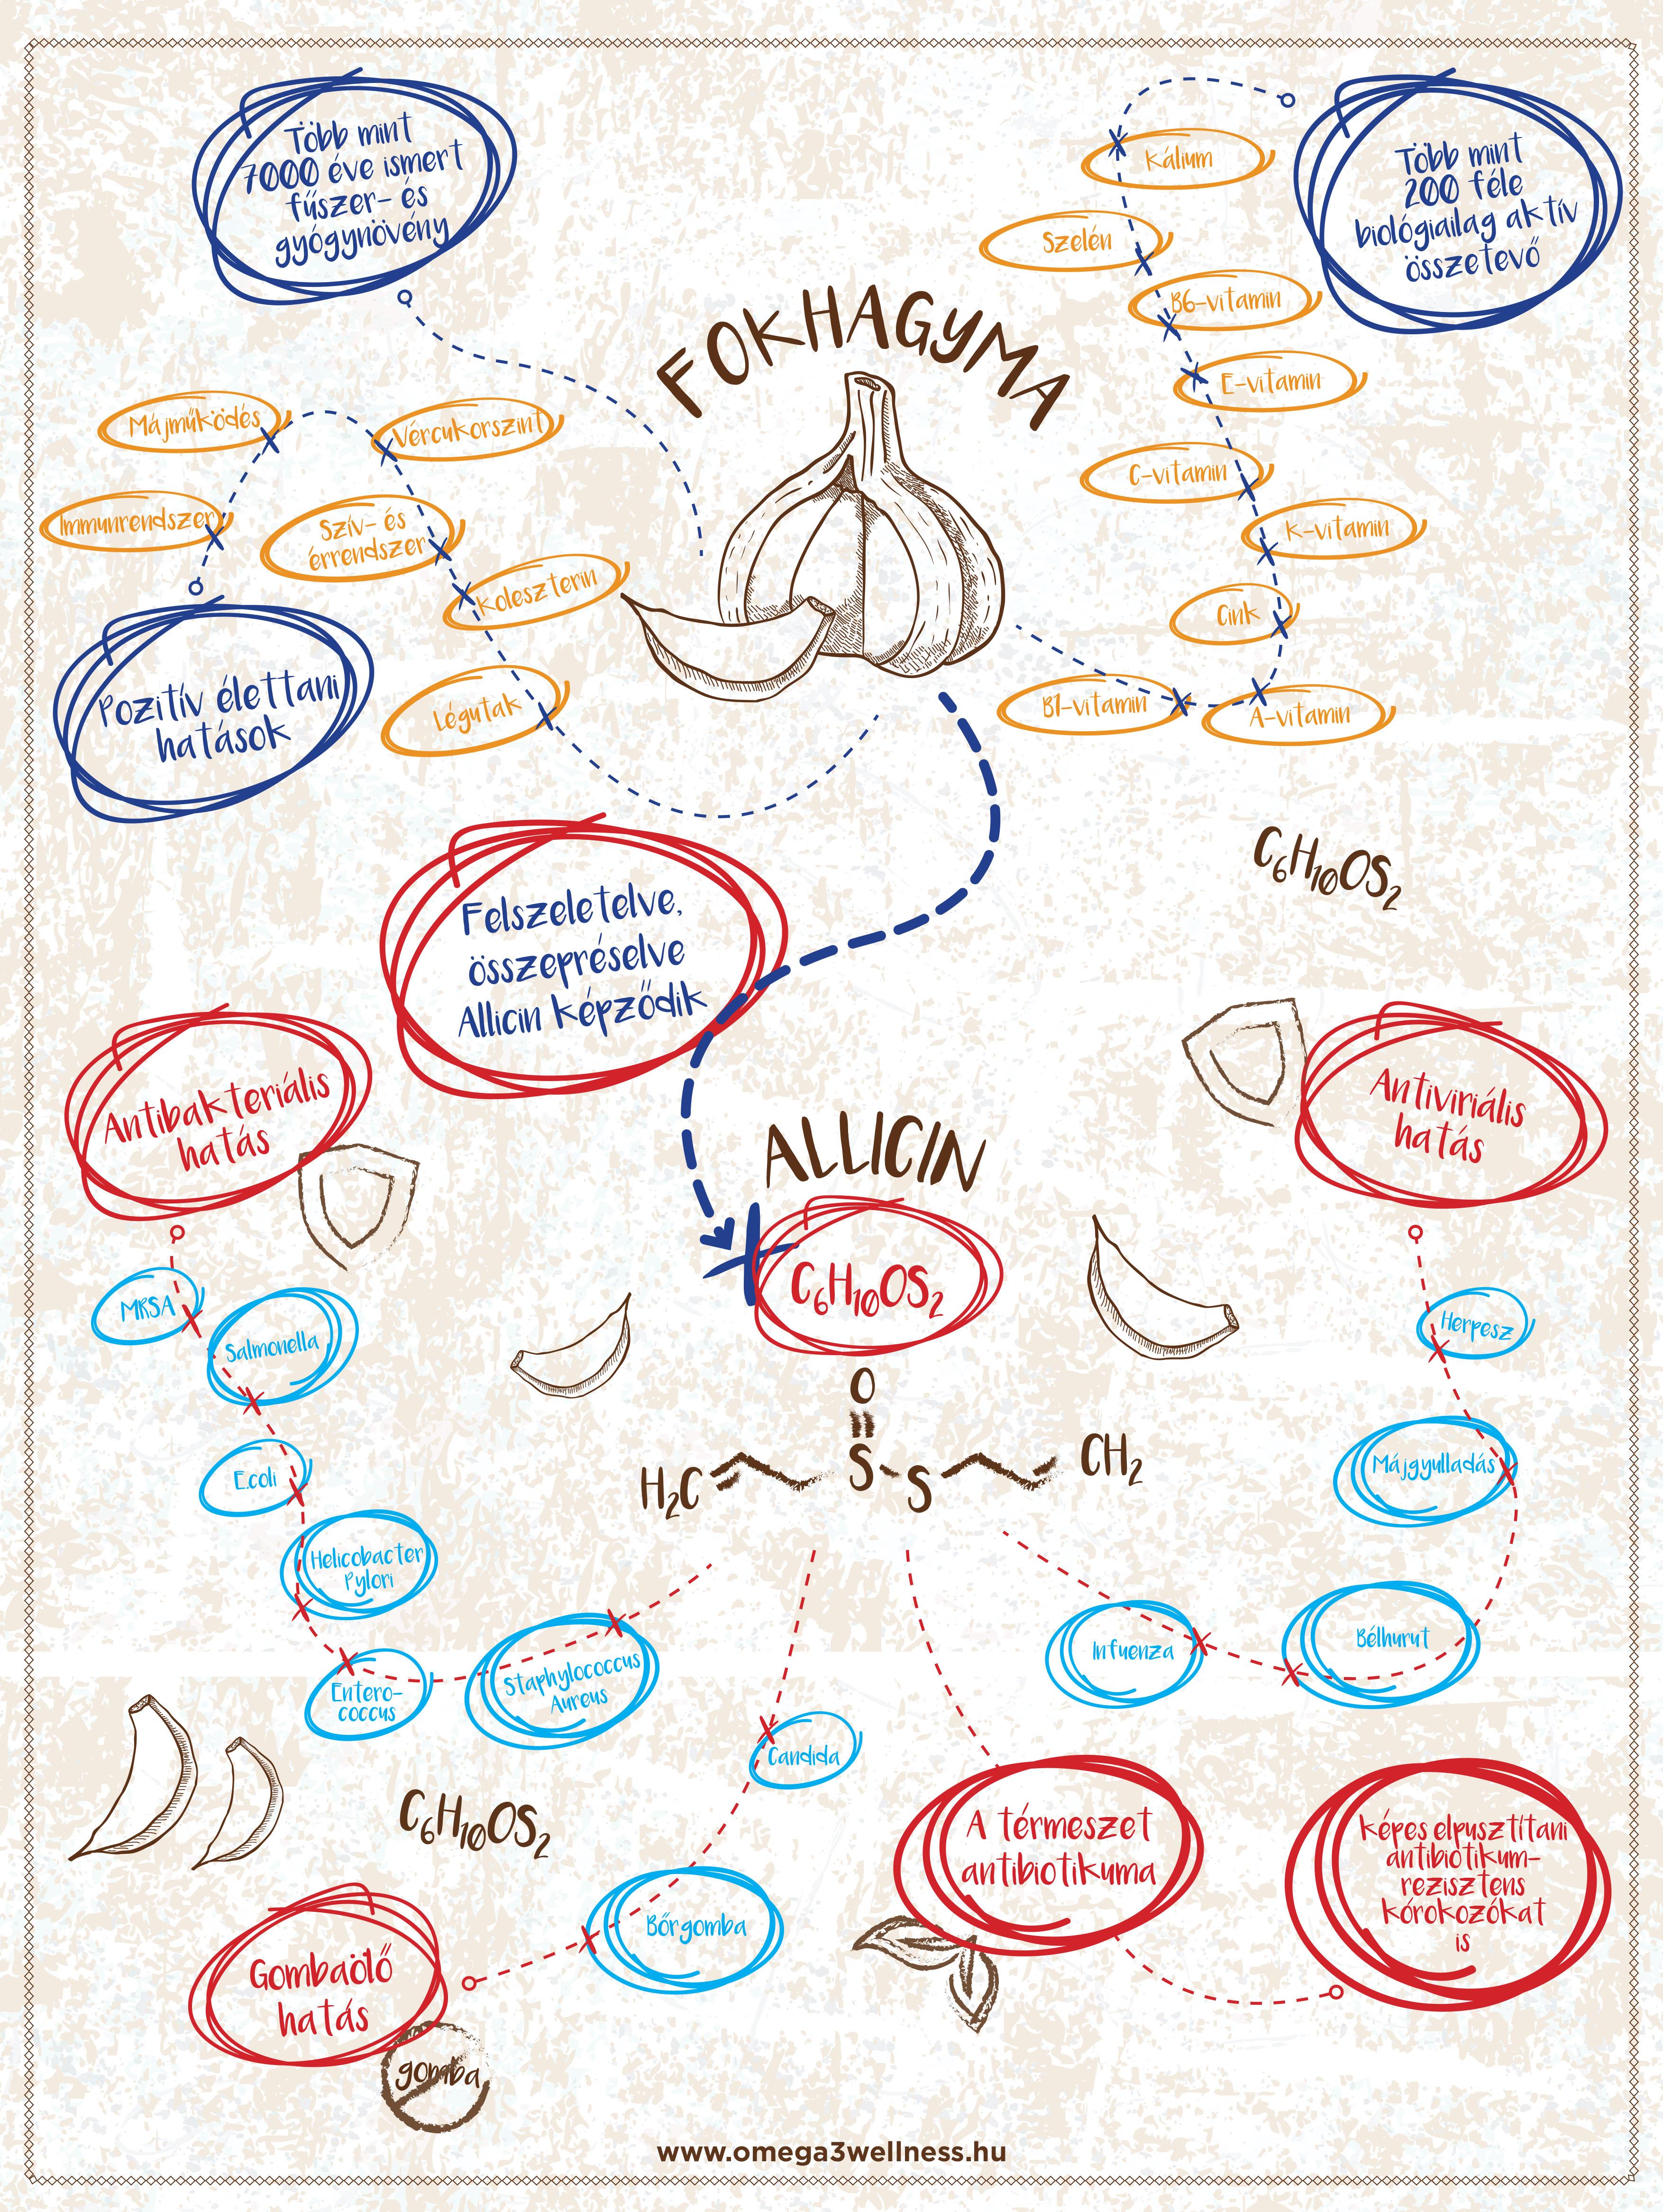 Több mint
7000 éve ismert
fűszer- és
gyógynövény
Több mint
200 féle
biológiailag aktív
összetevő
Kálium
Szelén
B6-vitamin
E-vitamin
C-vitamin
K-vitamin
Cink
A-vitamin
B1-vitamin
FOKHAGYMA
Májműködés
Vércukorszint
Immunrendszer
Szív- és
érrendszer
Koleszterin
Légutak
Pozitív élettani
hatások
Felszeletelve,
összepréselve
Allicin képződik
C6H10OS2
Antibakteriális
hatás
Antiviriális
hatás
ALLICIN
C6H10OS2
O
S
S
H2C
CH2
MRSA
Salmonella
E.coli
Helicobacter
Pylori
Entero-
coccus
Staphylococcus
Aureus
Herpesz
Májgyulladás
Bélhurut
Infuenza
Candida
Bőrgomba
C6H10OS2
Gombaölő
hatás
gomba
A térmeszet
antibiotikuma
képes elpusztítani
antibiotikum-
rezisztens
kórokozókat
is
www.omega3wellness.hu